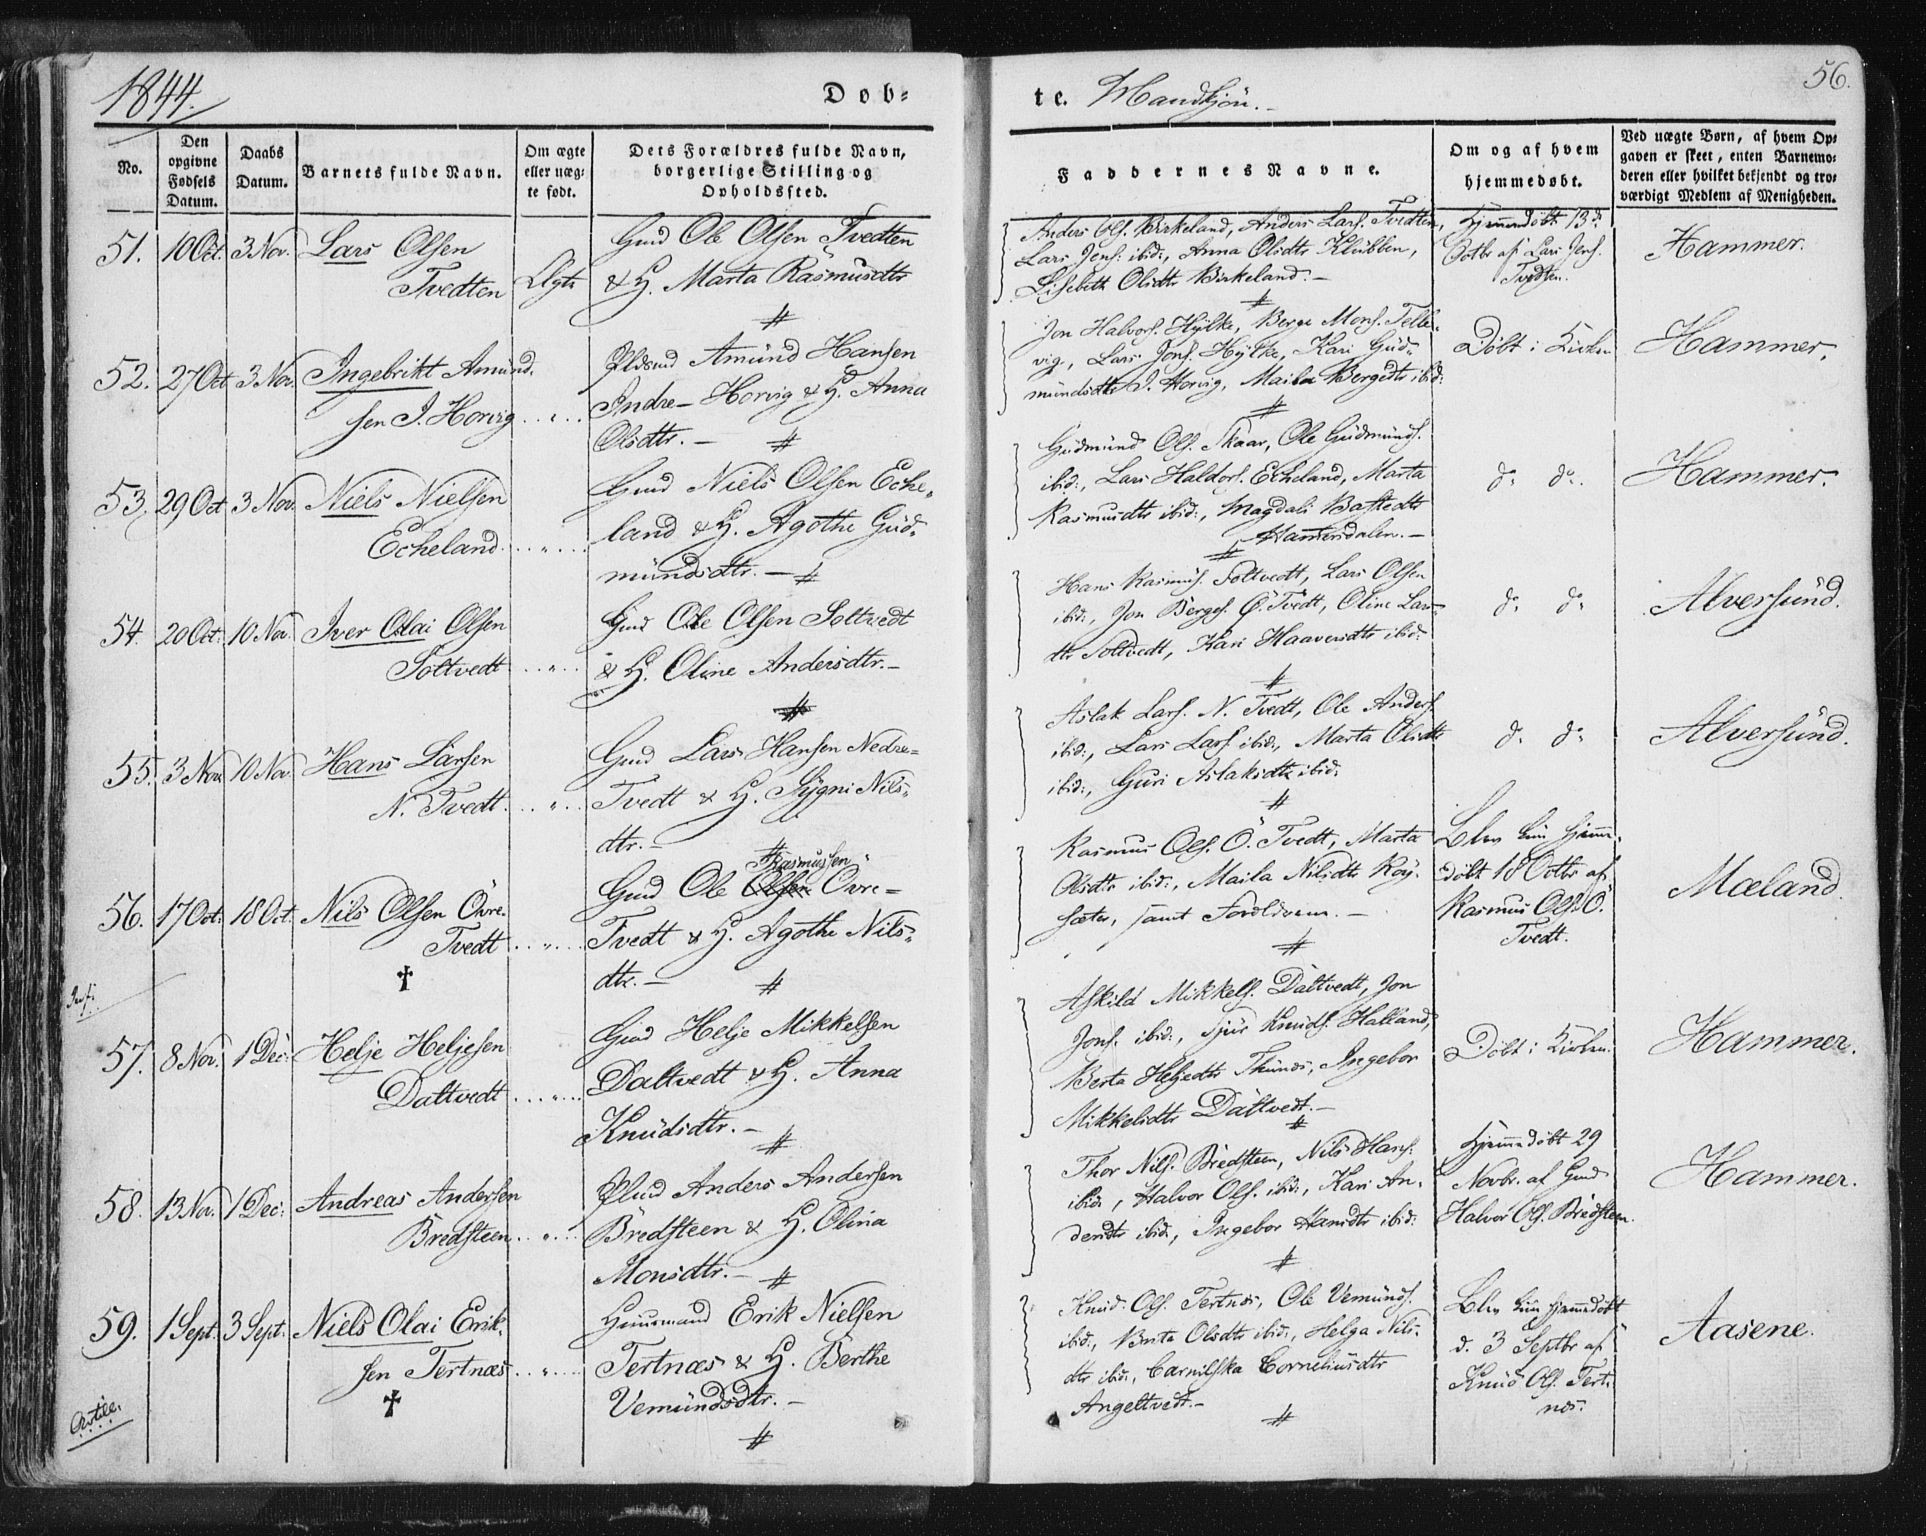 1844.
Dob-
te. Mandkjön.
56.
No.
Den opgivne Fødsels Datum.
Daabs Datum.
Barnets fulde Navn.
Om ægte eller uægte født.
Dets Forældres fulde Navn, borgerlige Stilling og Opholdssted.
Faddernes Navne.
Om og af hvem hjemmedøbt.
Ved uægte Børn, af hvem Opgaven er skeet, enten Barnemoderen eller hvilket bekjendt og troværdigt Medlem af Menigheden.
51. 10 Oct. 3 Nov. Lars Olsen
Tvedten
Gmd Ole Olsen Tvedten
& H. Marta Rasmusdtr
Anders Ols. Birkeland, Anders Lars. Tvedten,
Lars Jens. ibid:, Anna Olsdtr Klubben,
Lisebeth Olsdtr Birkeland.-
Hjemmedöbt 13de
Octbr af Lars Jens.
Tvedten.
Hammer.
52. 27 Oct 3 Nov. Ingebrikt Amund-
sen I. Horvig
Amund Hansen
Indre- Horvig & H. Anna
Olsdtr.-
Jon Halvors. Hylke, Berge Mons. Telle-
vig, Lars Jons. Hylke, Kari Gud-
mundsdtr I. Horvig, Maila Bergesdtr ibid:
Döbt i Kirken
Hammer.
53. 29 Oct 3 Nov. Niels Nielsen
Echeland
Gmd Niels Olsen Eche-
land & H. Agothe Gud-
mundsdtr.-
Gudmund Ols. Skaar, Ole Gudmunds.
ibid:, Lars Haldors. Echeland, Marta
Rasmusdtr ibid:, Magdali
Hammersdalen.-
do do.
Hammer.
54. 20 Oct: 10 Nov. Iver Olai Olsen
Soltvedt
Gmd Ole Olsen Soltvedt
& H. Oline Andersdtr.-
Hans Rasmus. Soltvedt, Lars Olsen
ibid:, Jon Berges. Ö. Tvedt, Oline Lars-
dtr Soltvedt, Kari Haaversdtr ibid:
do do
Alversund.
55. 3 Nov. 10 Nov. Hans Larsen
N. Tvedt.
Gmd Lars Hansen Nedre-
Tvedt & H. Sygni Nils-
dtr.-
Aslak Lars. N. Tvedt, Ole Anders.
ibid:, Lars Lars. ibid:, Marta Olsdtr
ibid:, Guri Aslaksdtr ibid:
do do
Alversund.
56. 17 Oct: 18 Oct. Nils Olsen Övre-
Tvedt
Rasmussen
Gmd Ole Olsen Övre-
Tvedt & H. Agothe Nils-
dtr.-
Rasmus Ols. Ö. Tvedt, Marta
Olsdtr ibid:, Maila Nilsdtr Röy-
sæter, samt Forældrene.-
Blev kun hjemme-
döbt 18 Octbr af
Rasmus Ols. Ö.
Tvedt.
Mæland.
57. 8 Nov. 1 Dec: Helje Heljesen
Daltvedt
Gmd Helje Mikkelsen
Daltvedt & H. Anna
Knudsdtr.-
Askild Mikkels. Daltvedt, Jon
Jons. ibid:, Sjur Knuds. Halland,
Berta Heljedtr Thunes, Ingebor
Mikkelsdtr Daltvedt.-
Döbt i Kirken.
Hammer.
58. 13 Nov. 1 Dec: Andreas Andersen
Bredsteen
Anders Andersen
Bredsteen & H. Olina
Monsdtr.-
Thor Nils. Bredsteen, Nils Hans.
ibid:, Halvor Ols. ibid:, Kari An-
dersdtr ibid:, Ingebor Hansdtr ibid:
Hjemmedöbt 29
Novbr. af Gmd
Halvor Ols. Bredsteen.
Hammer.
59. 1 Sept. 3 Sept: Niels Olai Erik-
sen Tertnæs
Huusmand Erik Nielsen
Tertnæs & H. Berthe
Vemundsdtr.-
Knud Ols. Tertnæs, Ole Vemunds.
ibid:, Olsdtr ibid:, Helga Nils-
dtr ibid:, Corneliusdtr
Angeltvedt.-
Blev kun hjemmedöbt
d. 3 Septbr af
Knud Ols. Tert-
næs.
Aasene.